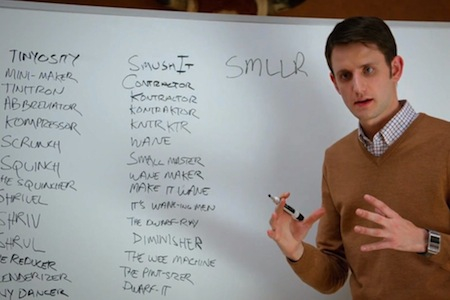 TINYOSITY
MINI-MAKER
TINITRON
ABBREVIATOR
KOMPRESSOR
SCRUNCH
SQUINCH
HE SQUINCHER
SHRIVEL
SHRIV
SHRUL
E REDUCER
ENDERIZER
NY DANCER
SMUSHIT
CONTRACTOR
KONTRACTOR
KONTRAKTOR
KNTRKTR
WANE
SMALL MASTER
WANE MAKER
MAKE IT WANE
IT'S WANE-ING MEN
THE DWARF-RAY
DIMINISHER
THE WEE MACHINE
THE PINT-SIZER
DWARF-IT
SMLLR